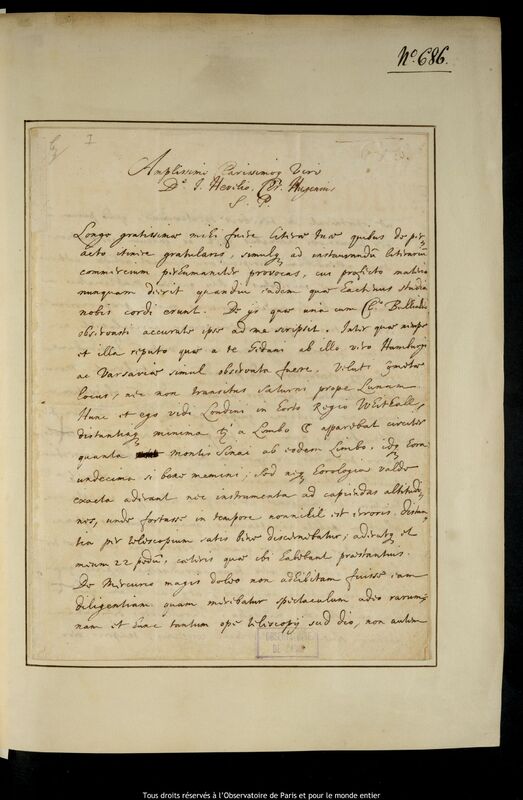 No. 686.
I
Amplissimo Clarissimoq Viro
D.o J. Hevelio, Chr. Hugenius
S. P.
Longe gratissimæ mihi fuere literæ tuæ quibus de per
acto itinere gratularis, simulq ad instaurandū literariū
commercium perhumaniter provocas, cui profecto materia
nunquam deerit quandiu eadem quæ hactenus studia
nobis cordi erunt. De ijs quæ una cum Cl.o Bullialdo
observasti accurate ipse ad me scripsit. Inter quæ nempe
et illa reputo quæ a te Gedani ab illo vero Hamburgi
ac Varsaviæ simul observata fuere. Veluti Cometæ
locus, nec non transitus Saturni prope Lunam.
Hunc et ego vidi Londini in horto Regio Westhall,
distantiaq minima ♄ a Limbo ☾ apparebat circiter
quanta montis Sinai ab eodem Limbo, idq hora
undecima si bene memini; Sed neq horologia valde
exacta aderant nec instrumenta ad capiendas altitudi
nes, unde fortasse in tempore nonnihil est erroris. distan
tia per telescopium satis bene discernebatur; aderatq et
meum 22 pedū, cæteris quæ ibi habebant præstantius.
De Mercurio magis doleo non adhibitam fuisse eam
diligentiam quam merebatur spectaculum adeo rarum;
nam et hunc tantum ope telescopij sub dio, non autem
OBSERVATOIRE
DE PARIS
Tous droits réservés à l'Observatoire de Paris et pour le monde entier